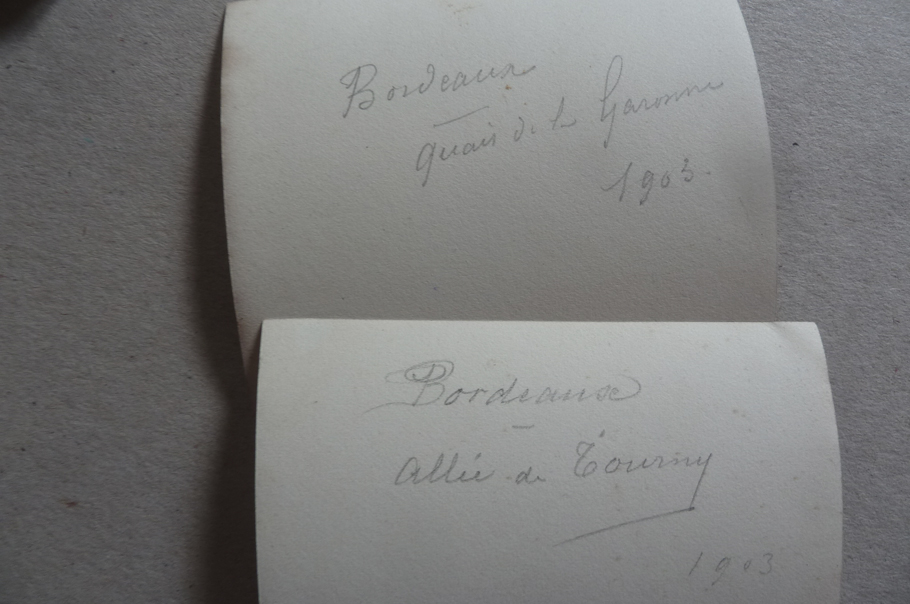 Bordeaux
quais de la Garonne
1903.
Bordeaux
allée de Tourny
1903